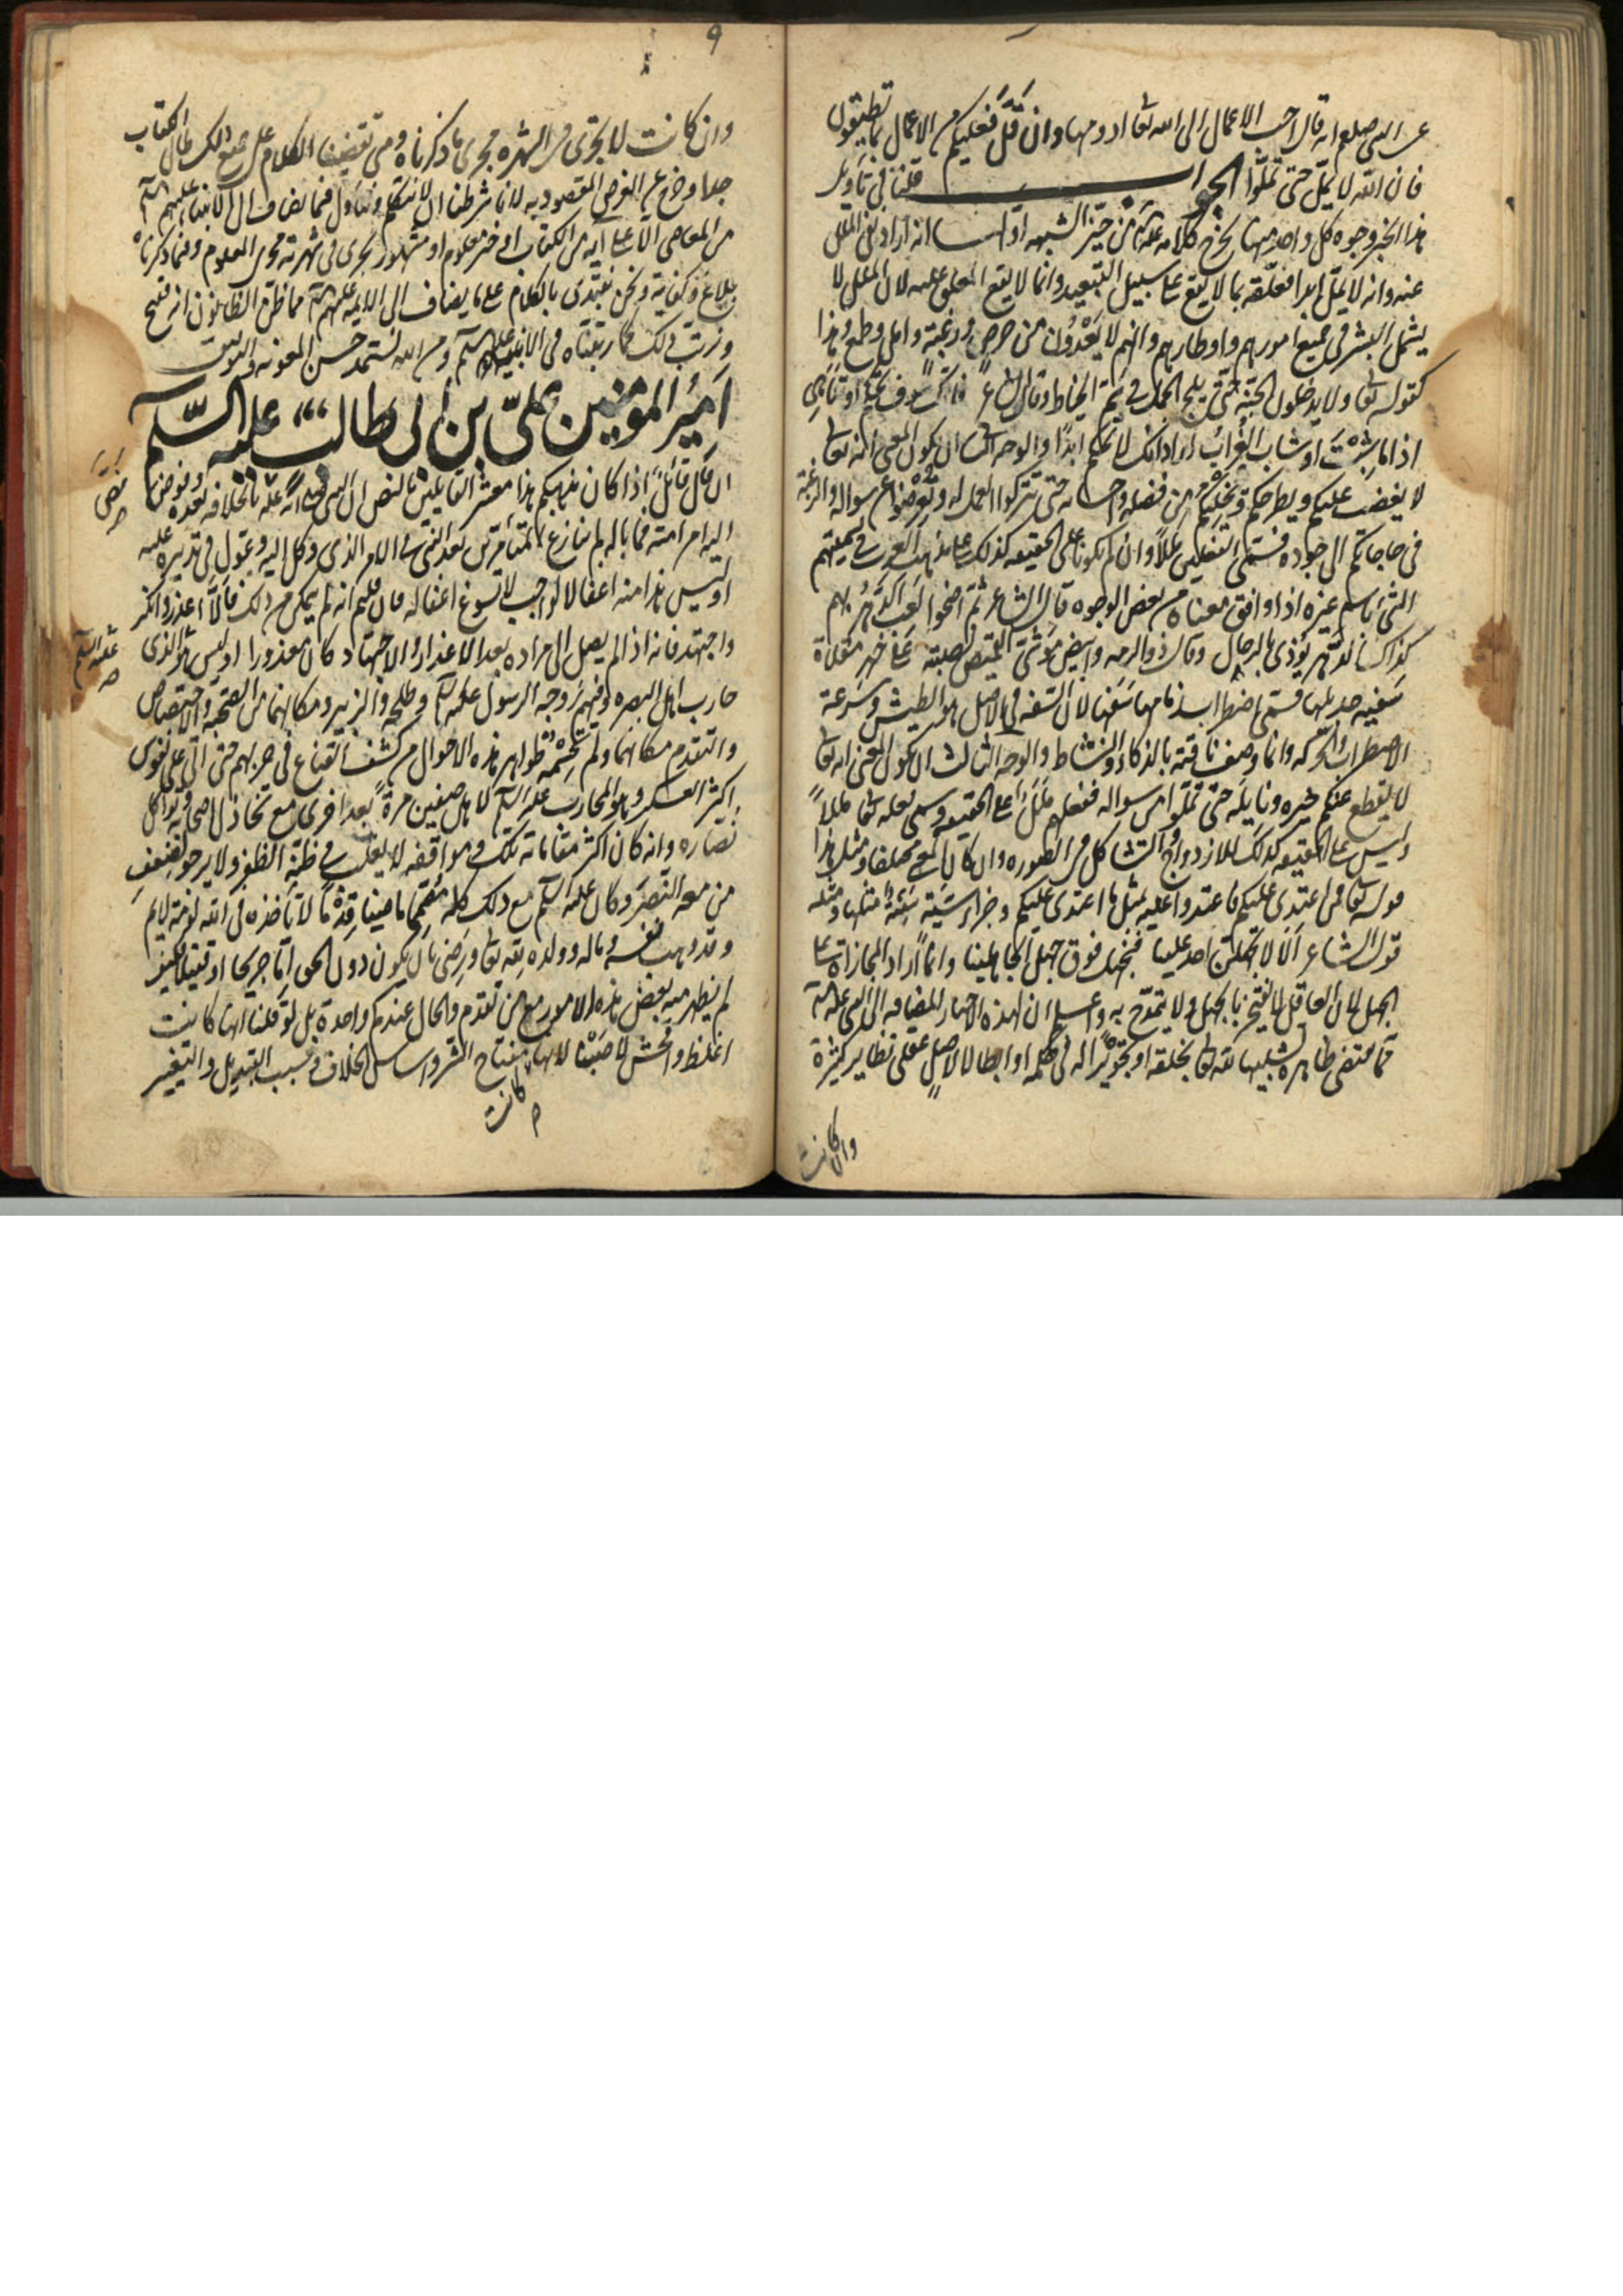 عن النبي صلعم انه قال احب الاعمال الى الله تعا ادومها وان قل فعليكم من الاعمال بما تطيقون
فان الله لا يمل حتى تملوا الجواب قلنا في تأويل
هذا الخبر وجوه كل واحد منها يخرج كلامه علیه من حيز الشبهه اولها انه اراد نفى الملل
عنه وانه لا يمل ابدا فعلقه بما لا يقع على سبيل التبعيد وانما لا يقع المعلق عليه لان الملل لا
يشمل البشر في جميع امورهم واوطارهم وانهم لا يعدون من حرص ورغبة وامل وطمع وهذا
كقوله تعا ولا يدخلون الجنة حتى يلج الجمل في سم الخياط وقال الشاعر فانك سوف تحكم او تناهى
اذا ما شبت او شاب الغراب اراد انك لا تحكم ابدا والوجه الثانى ان يكون المعنى انه تعا
لا يغضب عليكم ويطرحكم ويخليكم من فضله واحسانه حتى تتركوا العمل له وتعرضوا عن سواله والرغبة
في حاجاتكم الى جوده فسمى الفعلين مللا وان لم يكونا على الحقيقه كذلك على مذهب العرب في تسميتهم
الشئ باسم غيره اذا وافق معناه من بعض الوجوه قال الشاعر ثم اضحوا لعب الدهر بهم
كذاك الدهر يؤذى بالرجال وقال ذو الرمه وابيض موشى القميص نصبته على خصر مقلاة
سفيه جديلها فسمى اضطراب زمامها سفها لان السفه في الاصل هو الطيش وسرعة
الاضطراب والحركه وانما وصف ناقته بالذكاء والنشاط والوجه الثالث ان يكون المعنى انه تعا
لا يقطع عنكم خيره ونايله حتى تملوا من سواله ففعلهم ملل على الحقيقه وسمى فعله تعا مللا
وليس على الحقيقه كذلك للازدواج والتشاكل في الصوره وان كان المعنى مختلفا ومثل هذا
قوله تعا فمن اعتدى عليكم فاعتدوا عليه بمثل ما اعتدى عليكم وجزاء سيئة سيئة مثلها ومثله
قول الشاعر الا لا يجهلن احد علينا فنجهل فوق جهل الجاهلينا وانما اراد المجازاة على
الجهل لان العاقل لا يفتخر بالجهل ولا يتمدح به واعلم ان لهذه الاخبار المضافه الى النبى علیه
مما يقتضى ظاهره تشبيها لله تعا بخلقه او تجويرا له في حكمه او ابطالا لاصل عقلى نظاير كثيرة
وان كانت
٩
وان كانت لا تجرى في الشهره مجرى ما ذكرناه ومتى تقصينا الكلام على جميع ذلك طال الكتاب
جدا وخرج عن الغرض المقصود به لانا شرطنا ان لا نتكلم ونتأول فيما يضاف الى الانبياء عليهم
من المعاصى الا على آية من الكتاب او خبر معلوم او مشهور يجرى في شهرته مجرى المعلوم وفيما ذكرناه
بلاغ وكفاية ونحن نبتدى بالكلام على ما يضاف الى الايمه عليهم مما ظن الظانون انه قبيح
ونرتب ذلك كما رتبناه في الانبياء عليهم ومن الله نستمد حسن المعونه والتوفيق
امير المومنين على بن ابى طالب عليه السلم
ان قال قائل اذا كان مذهبكم هذا معشر القايلين بالنص ان النبى نص عليه بالخلافه بعده وفوض
اليه امر امته فما باله لم ينازع المتأمرين بعد النبى في الامر الذى وكل اليه وعول في تدبيره عليه
اوليس هذا منه اغفالا لواجب لا يسوغ اغفاله فان قلتم انه لم يتمكن من ذلك فهلا اعذر وانكر
واجتهد فانه اذا لم يصل الى مراده بعد الاعذار والاجتهاد كان معذورا اوليس هو الذى
حارب اهل البصره وفيهم زوجه الرسول عليه وطلحه والزبير ومكانهما من الصحبة والاختصاص
والتقدم مكانهما ولم تحشمه ظواهر هذه الاحوال من كشف القناع في حربهم حتى اتى على نفوس
اكثر العسكر وهو المحارب لاهل صفين مرة بعد اخرى مع تخاذل اصحابه وتواكل
نصاره وانه كان اكثر مقاماته تلك وفي مواقفه لا يغلب في ظنه الظفر ولا يرجو لضعف
من معه النصر وكان عليه مع ذلك كله مصمما ماضيا قدما لا تأخذه في الله لومة لايم
وقد وهب نفسه وماله وولده لله تعا ورضى بان يكون دون الحق اما جريحا او قتيلا فكيف
لم يظهر منه بعض هذه الامور مع من تقدم والحال عندكم واحدة بل لو قلنا انها كانت
اغلظ وافحش لاصبنا لانها مفتاح الشر واساس الخلاف وسبب التبديل والتغيير
كانت
نص
عليه السلم